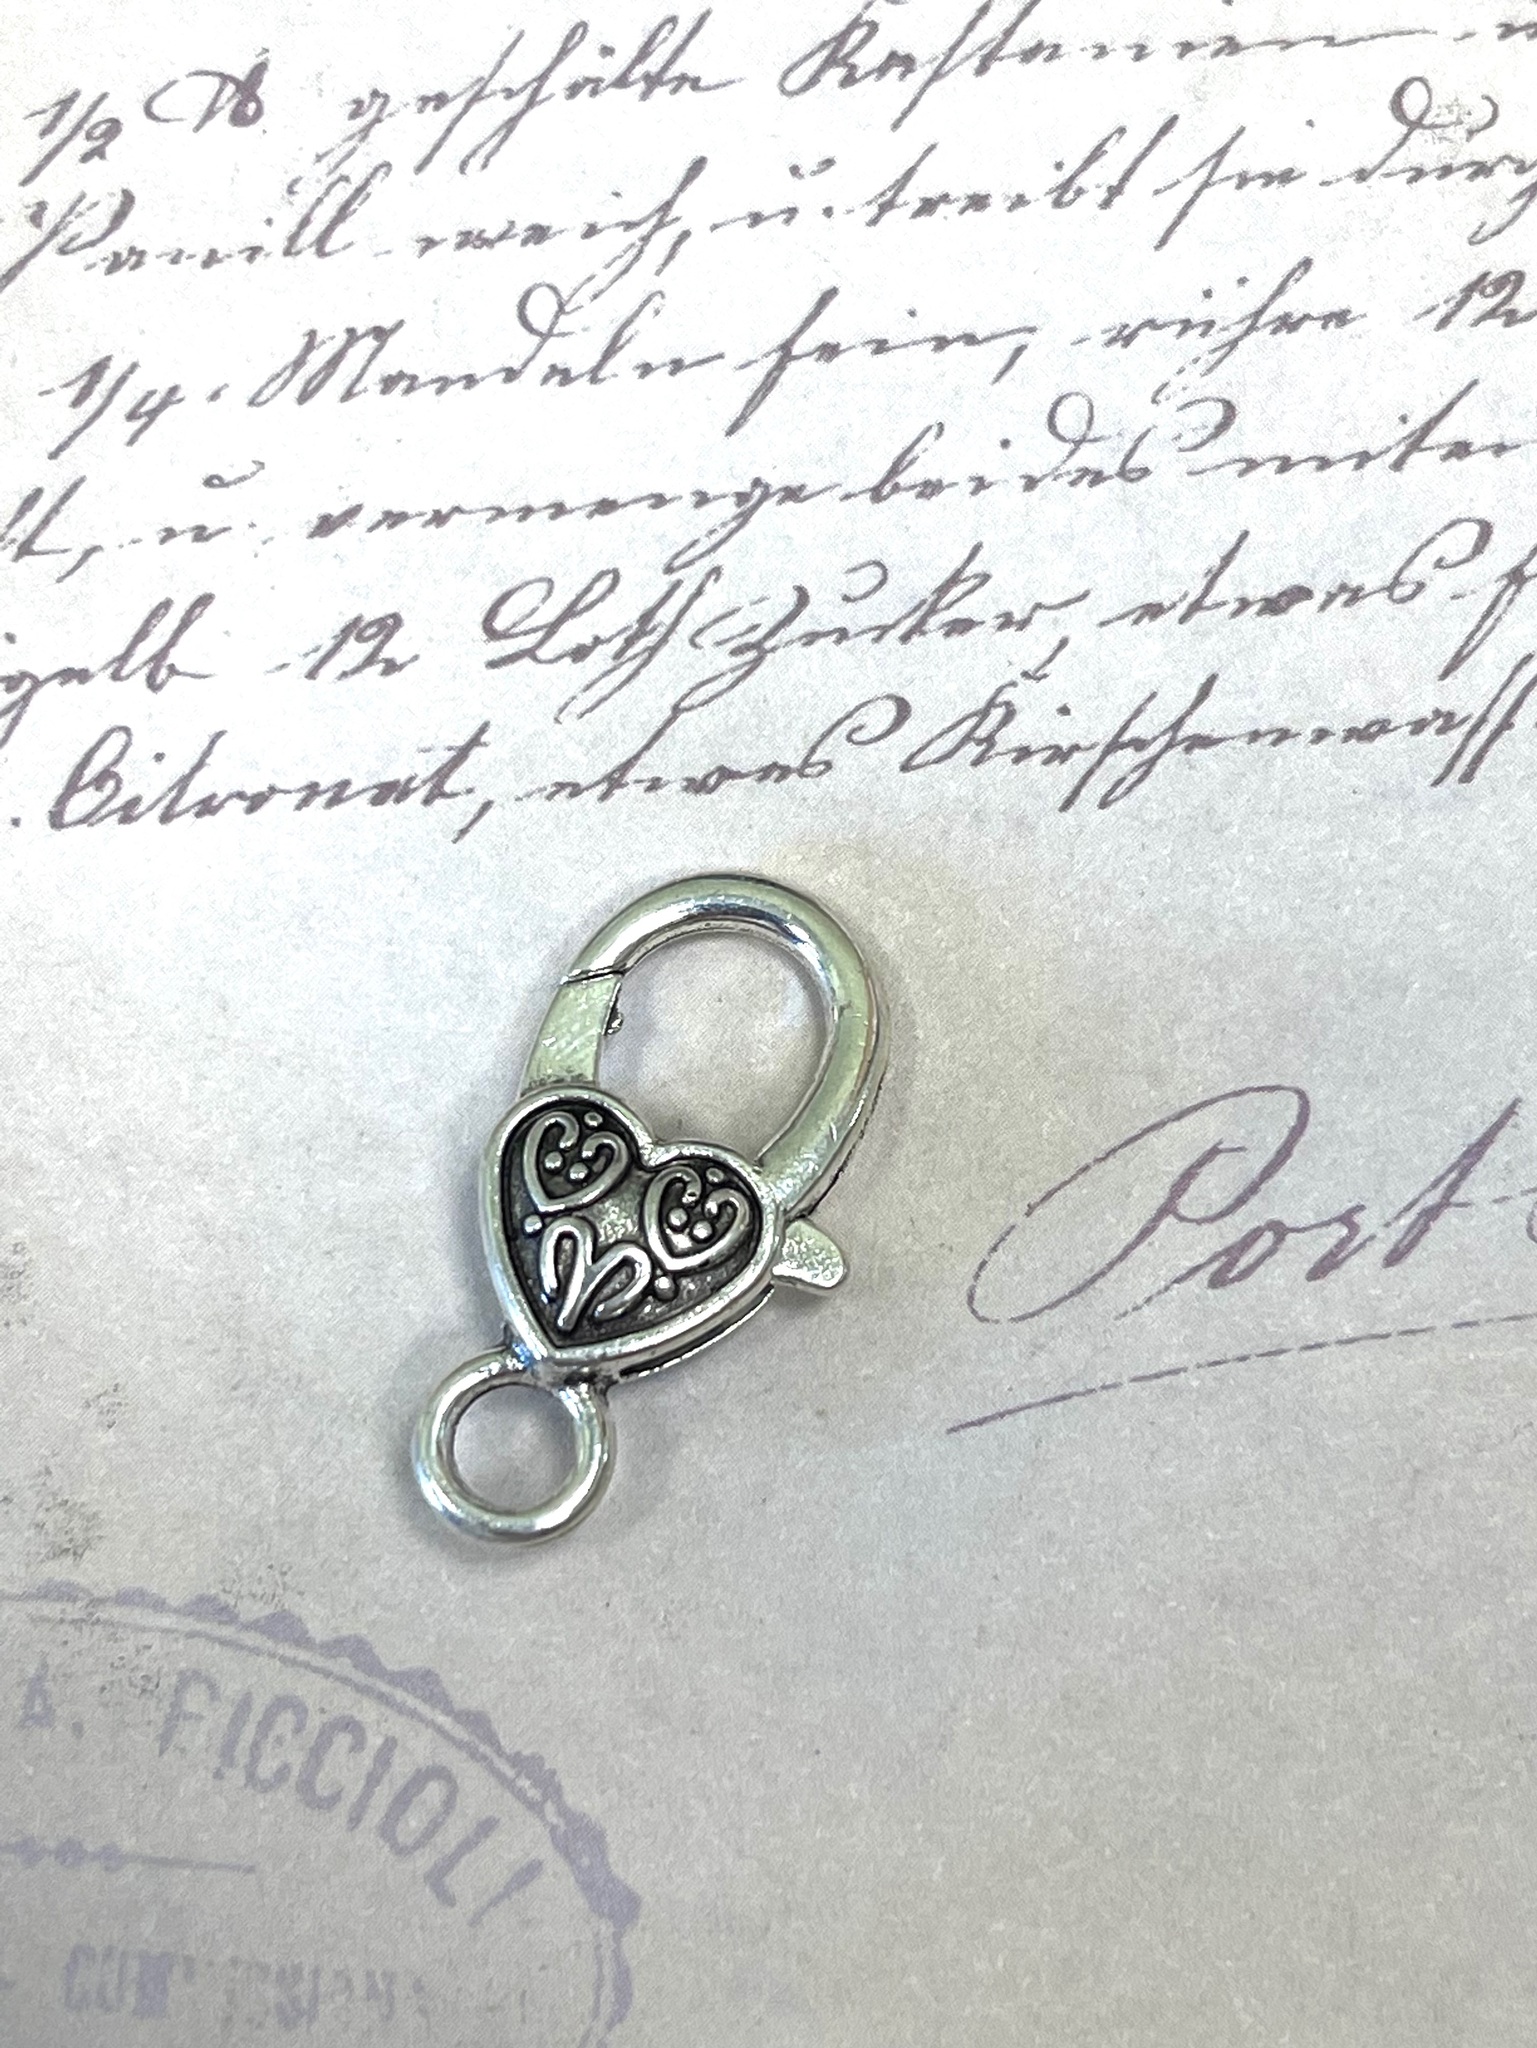 1/2 ℔ geschälte Kastanien
Vanill weich, u. treibt sie durch
1/4. Mandeln fein, rühre 12
lt, u. vermenge beides miten
igelb 12 Loth Zucker, etwas f
. Citronat, etwas Kirschenwass
Post
A. FICCIOLI